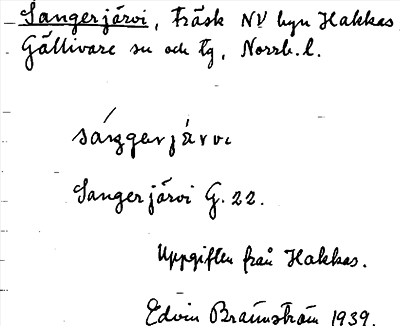 Sangerjärvi, träsk NV byn Hakkas
Gällivare sn och tg, Norrb. l.
sáŋgerjärvi
Sangerjärvi G. 22.
Uppgiften från Hakkas.
Edvin Brännström 1939.